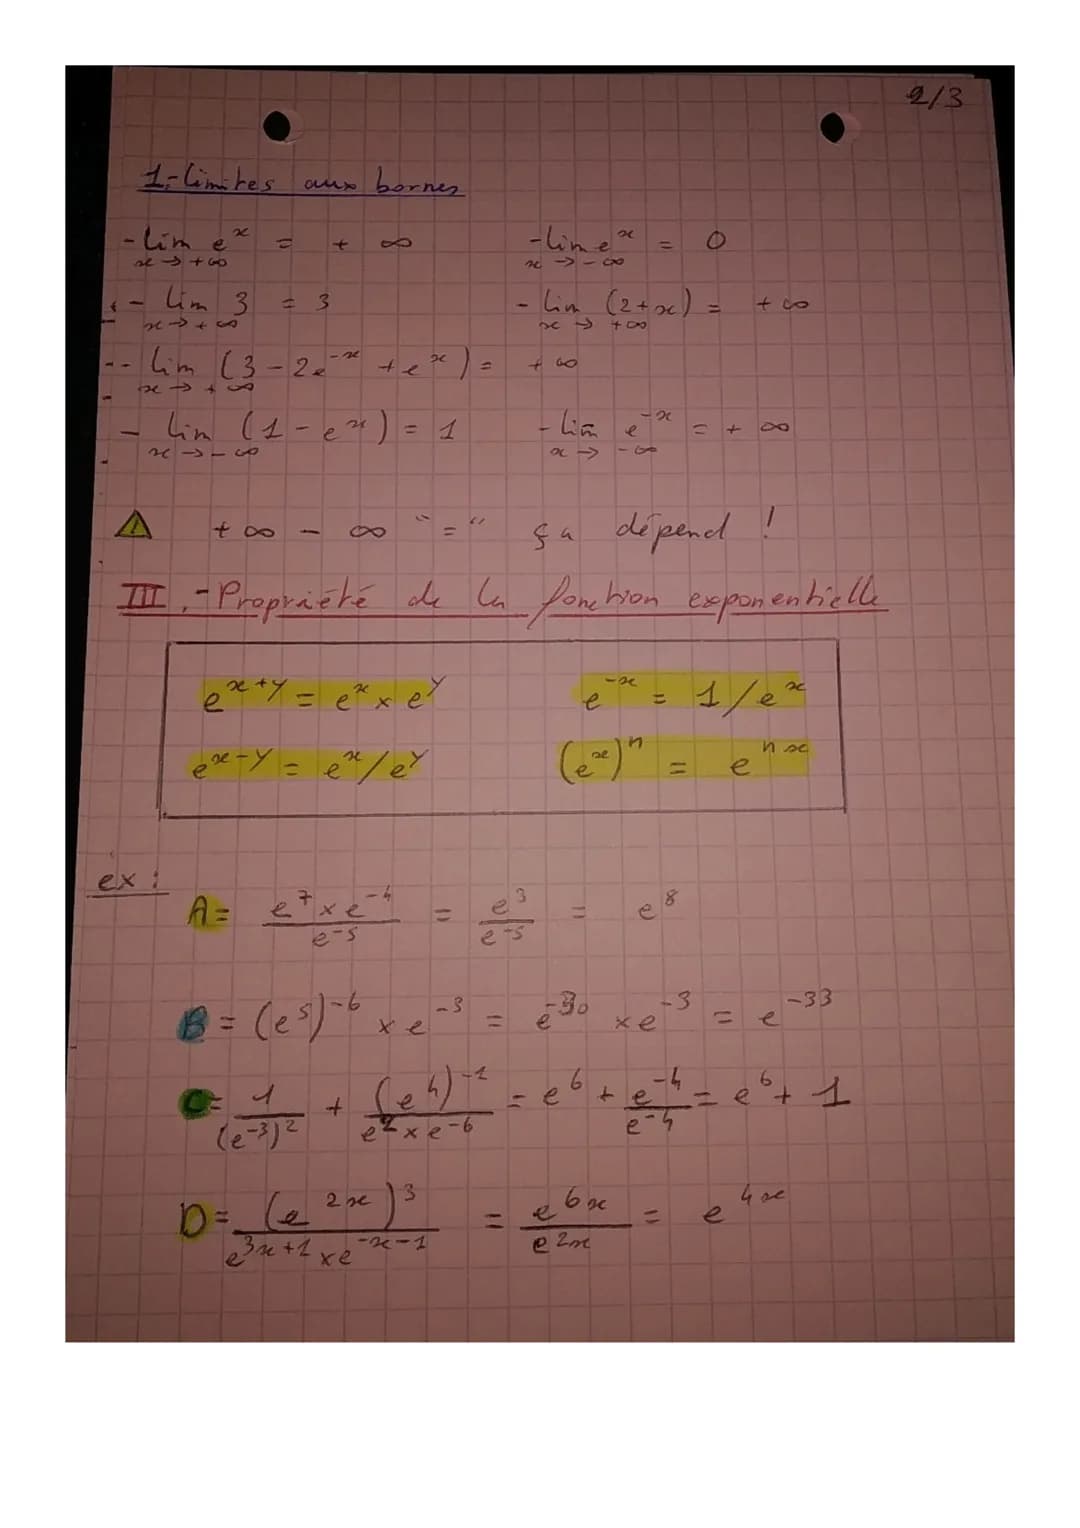 2/3
1,-limites aux bornes
- lim e^x = + ∞   x → +∞
- lim e^x = 0   x → -∞
- lim 3 = 3   x → +∞
- lim (2+x) = +∞   x → +∞
- lim (3 - 2e^-x + e^x) = +∞   x → +∞
- lim (1 - e^x) = 1   x → -∞
- lim e^-x = + ∞   x → -∞
⚠ +∞ - ∞ "=" ça dépend !
III,-Propriété de la fonction exponentielle
e^x+y = e^x × e^y   e^-x = 1/e^x
e^x-y = e^x/e^y   (e^x)^n = e^nx
ex :
A = (e^7 × e^-4)/(e^-5) = e^3/e^-5 = e^8
B = (e^5)^-6 × e^-3 = e^-30 × e^-3 = e^-33
C = 1/(e^-3)^2 + (e^4)^-1/(e^2 × e^-6) = e^6 + e^-4/e^-4 = e^6 + 1
D = (e^2x)^3/(e^3x+1 × e^-x-1) = e^6x/e^2x = e^4x